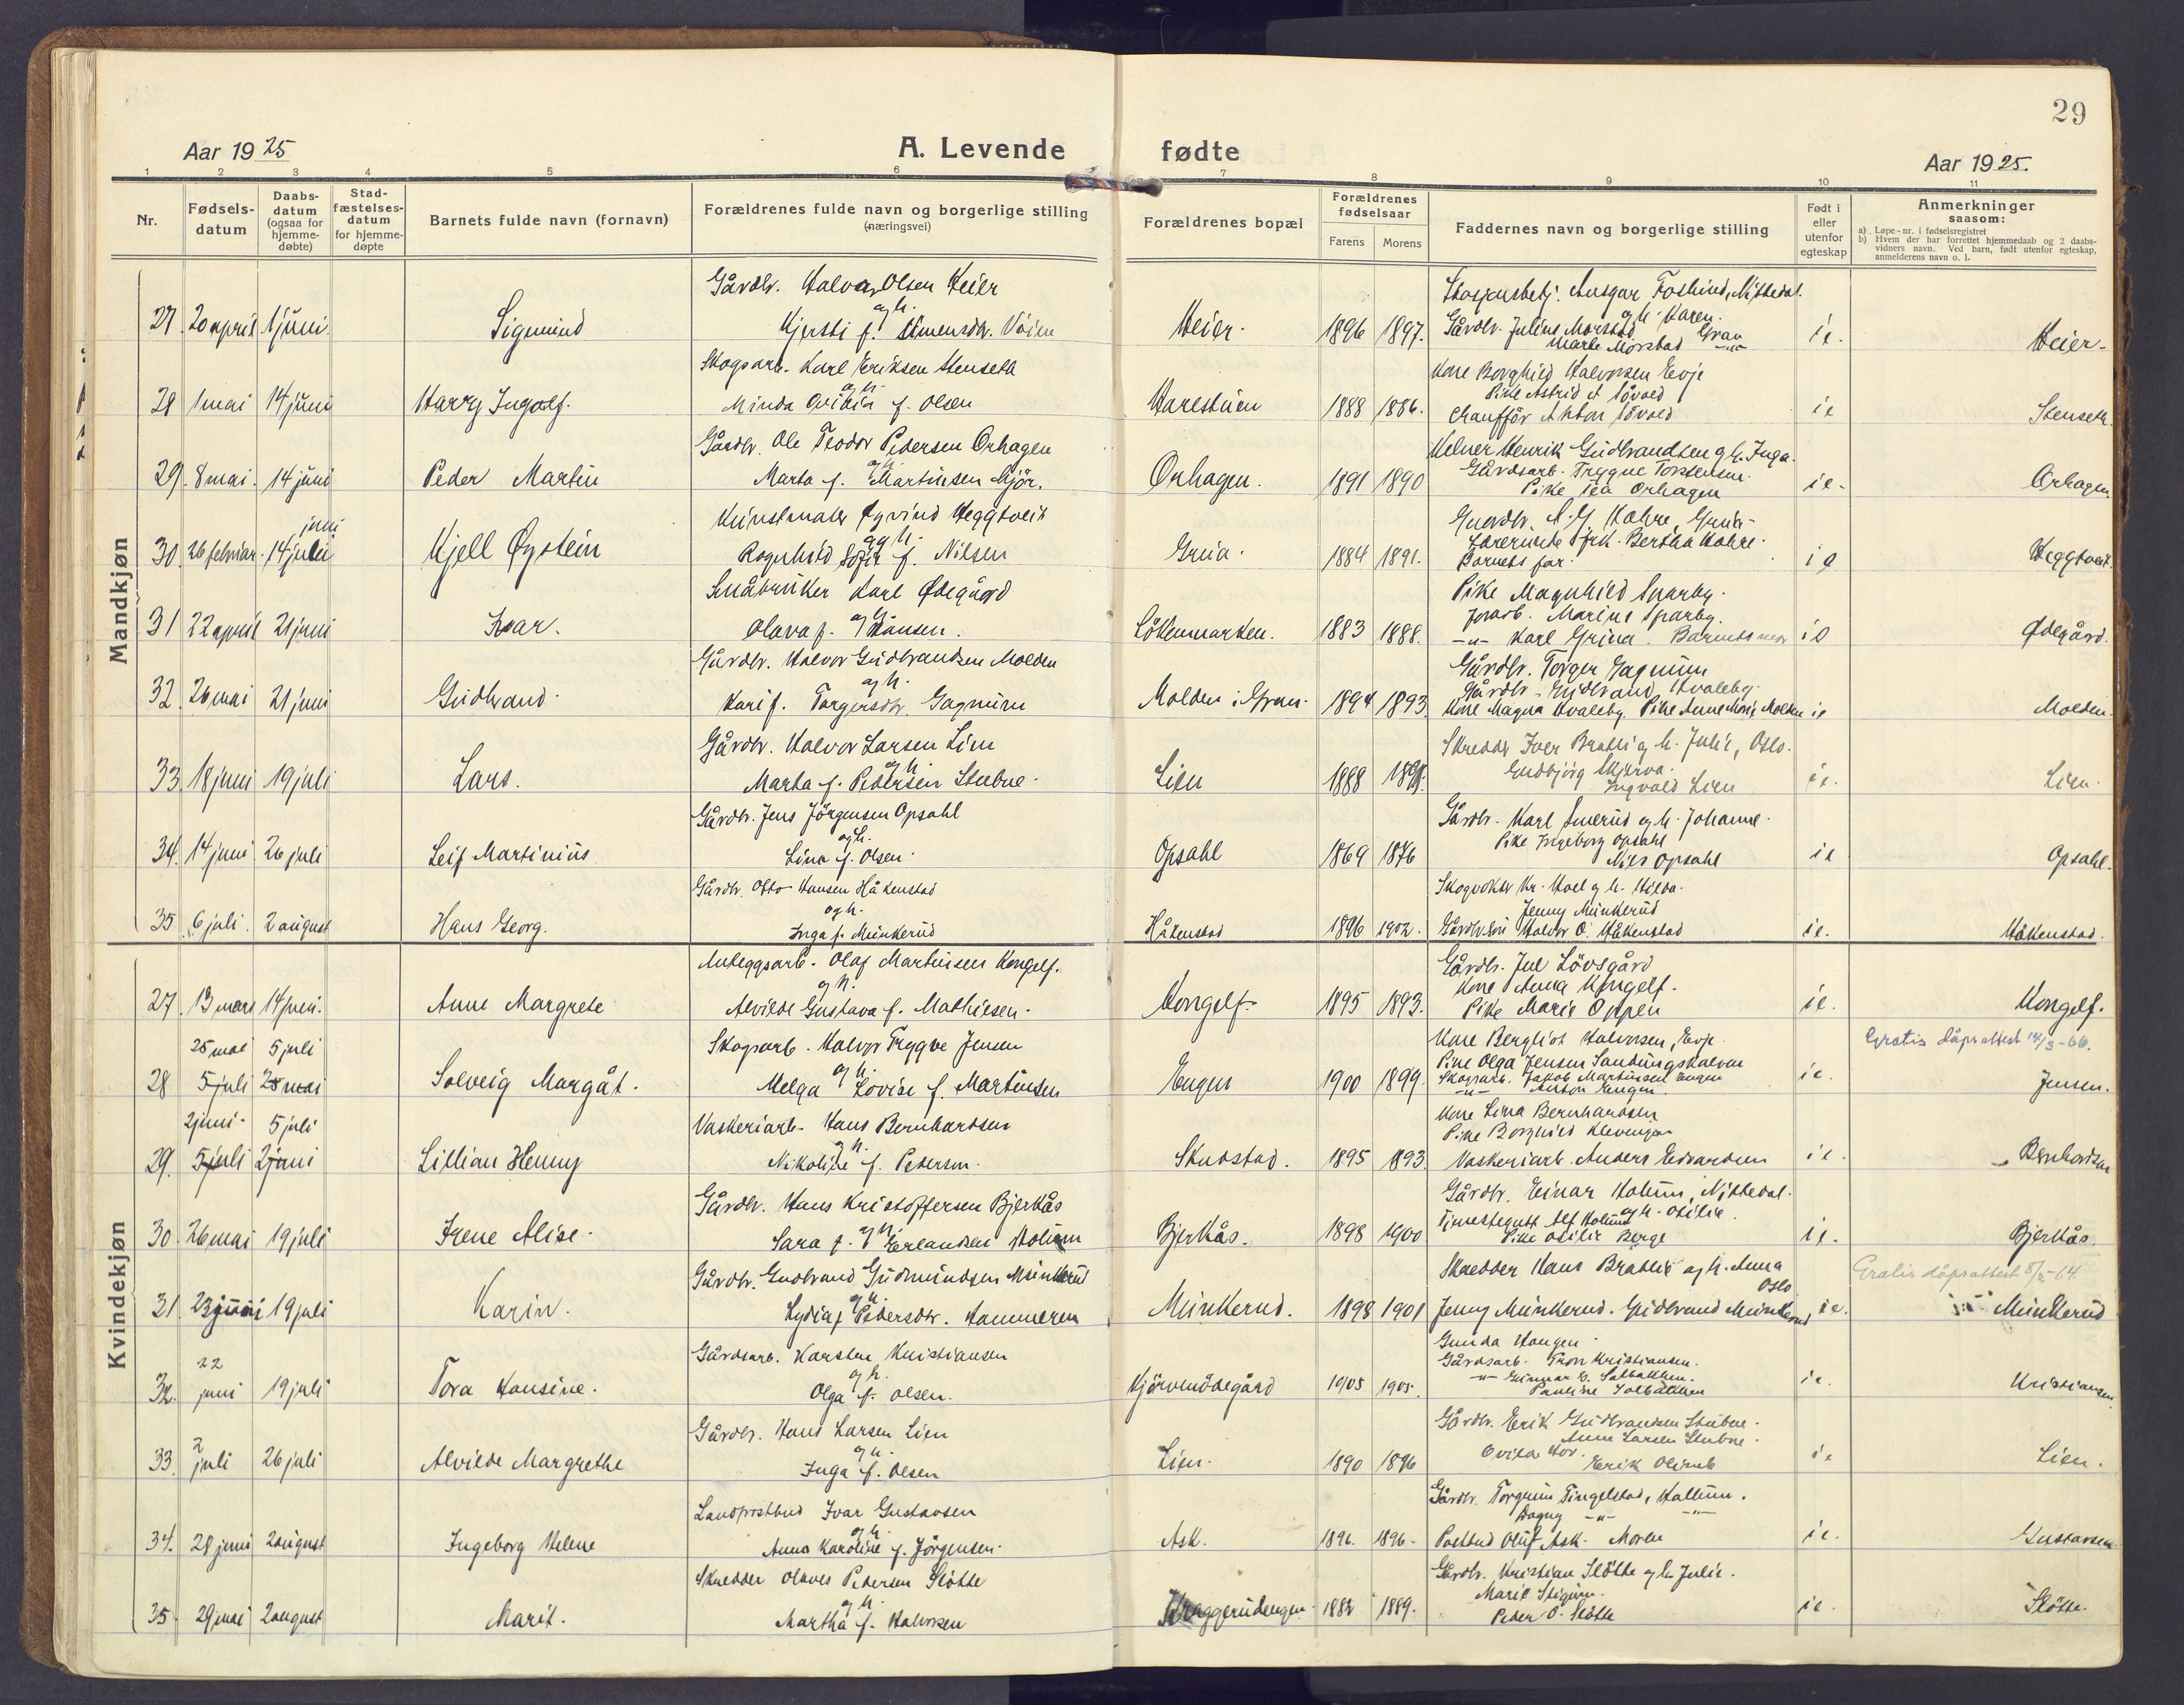 29
Aar 1925
A. Levende fødte
Aar 1925.
1 2 3 4 5 6 7 8 9 10 11
Nr.
Fødsels-datum
Daabs-datum (ogsaa for hjemme-døbte)
Stad-fæstelses-datum for hjemme-døpte
Barnets fulde navn (fornavn)
Forældrenes fulde navn og borgerlige stilling (næringsvei)
Forældrenes bopæl
Forældrenes fødselsaar
Farens Morens
Faddernes navn og borgerlige stilling
Født i eller utenfor egteskap
Anmerkninger saasom:
a) Løpe-nr. i fødselsregistret
b) Hvem der har forrettet hjemmedaab og 2 daabs-vidners navn. Ved barn, født utenfor egteskap, anmelderens navn o. l.
Mandkjøn
Gårdbr. Halvor Olsen Heier
27. 20 april 1 juni. Sigmund
og h.
Kjersti f. Simensdr.
Heier. 1896 1897.
Ansgar Foslund, Nittedal.
og h. Karen.
Gårdbr. Julius Morstad Gran
Marte Morstad -"-
i e. Heier.
Skogsarb. Karl Eriksen Stenseth
28 1 mai 14 juni Harry Ingolf.
og h.
Minda f. Olsen
Harestuen 1888 1886.
Kone Borghild Halvorsen Evje
Pike Astrid
Chauffør Anton
i e Stenseth
Gårdbr. Ole Teodor Pedersen Orhagen
29. 8 mai. 14 juni Peder Martin
og h.
Marta f. Martinsen
Orhagen. 1891 1890
Henrik Gudbrandsen og h. Inga.
Gårdsarb. Trygve Torstensen.
Pike Tea Orhagen
i e. Orhagen
Kunstmaler Øyvind Heggtveit
juni
30. 26 februar. 14 juli Kjell Øystein
og h.
Ragnhild Sofie f. Nilsen
Grua. 1884 1891.
Gårdbr. A. G. Hohre, Grua.
Lærerinde frk. Bertha Hohre.
Barnets far.
i e Heggtveit.
Småbruker Karl Ødegård
31 22 april 21 juni Ivar.
og h.
Olava f. Hansen.
Løkenmarken. 1883 1888.
Pike Magnhild Sparby.
Marius Sparby.
-"- Karl Grina. Barnets mor
i e Ødegård.
Gårdbr. Halvor Gudbrandsen Molden
32. 26 mai 21 juni Gudbrand.
og h.
Kari f. Torgersdr. Gagnum
Molden i Gran. 1894 1893.
Gårdbr. Torger Gagnum
Gårdbr. Gudbrand Hvaleby.
Kone Magna Hvaleby. Pike Anne Marie Molden
i e Molden.
Gårdbr. Halvor Larsen Lien
33. 18 juni 19 juli Lars.
og h.
Marta f. Pedersen Stubne.
Lien 1888
Skredder Iver Bratli og h. Julie, Oslo.
Gudbjørg Skjerva.
Ingvald Lien
i e. Lien.
Gårdbr. Jens Jörgensen Opsahl
34. 14 juni 26 juli Leif Martinius
og h.
Lina f. Olsen.
Opsahl 1869 1876
Gårdbr. Karl og h. Johanne.
Pike Ingeborg Opsahl
Nils Opsahl
i e Opsahl.
Gårdbr. Otto Hansen Håkenstad
35 6 juli. 2 august Hans Georg.
og h.
Inga f. Munkerud
Håkenstad 1896 1902.
Skogvokter Kr. Hoel og h. Hilda.
Jenny Munkerud
Gårdbr.søn Halvor O. Håkenstad
i e. Håkenstad.
Kvindekjøn
Anleggsarb. Olaf Martinsen Kongelf.
27. 13 mars 14 juni. Anne Margrete
og h.
Alvilde Gustava f. Mathiesen.
Kongelf. 1895 1893.
Gårdbr. Juel Lövsgård
Kone Anna Kongelf.
Pike Marie Oppen
i e. Kongelf.
Gratis dåpsattest 14/3-66.
25 mai 5 juli
28 5 juli 25 mai Solveig Margåt.
Skogsarb. Halvor Trygve Jensen
og h.
Helga Lovise f. Martinsen
Engen 1900 1899.
Kone Bergliot Halvorsen, Evje.
Pike Olga Jensen Sandungskalven
Skogsarb. Jakob Martinsen Engen
-"- Anton Engen.
i e. Jensen.
2 juni. 5 juli
29. 5 juli 2 juni Lillian Henny
Vaskeriarb. Hans Bernhardsen
og h.
Nikoline f. Pedersen.
Skudstad. 1895 1893
Kone Lina Bernhardsen
Pike Borghild Klevengen
Vaskeriarb. Anders Edvardsen
i e. Bernhardsen
Gårdbr. Hans Kristoffersen Bjerkås
30. 26 mai 19 juli Irene Alise.
og h.
Sara f. Erlandsen Holum
Bjerkås. 1898 1900
Gårdbr. Einar Holum, Nittedal.
og h. Otilie.
Tjenestegutt Alf Holum
Pike Otilie Berge
i e. Bjerkås.
Gårdbr. Gudbrand Gudmundsen Munkerud
31. 23 juni 19 juli Karin.
og h.
Lydia f. Pedersdtr. Hammeren
Munkerud. 1898 1901
Skredder Hans Bratlie og h. Anna
Oslo
Jenny Munkerud. Gudbrand Munkerud
i e. Munkerud
Gratis dåpsattest
Gårdsarb. Karsten Kristiansen
22
32. juni 19 juli Tora Hansine.
og h.
Olga f. Olsen.
Kjörvenödegård 1905 1905.
Gunda Haugen.
Gårdsarb. Tron Kristiansen.
-"- Gunnar B. Solbakken.
Pauline Solbakken
i e. Kristiansen
Gårdbr. Hans Larsen Lien
2
33. juli 26 juli Alvilde Margrethe
og h.
Inga f. Olsen
Lien. 1890 1896
Gårdbr. Erik Gudbrandsen Stubne.
Anne Larsen Stubne.
Ovida Hov.
Erik
i e Lien.
Landpostbud Ivar Gustavsen
34. 28 juni 2 august Ingeborg Helene
og h.
Anna Karoline f. Jörgensen.
Ask. 1896. 1896.
Gårdbr. Torgrim Tingelstad, Hallum.
Dagny -"- -"-
Postbud Oluf Ask. Moren
i e. Gustavsen
Skredder Olaves Pedersen Slötte
35. 29 mai 2 august Marit.
og h.
Martha f. Halvorsen
Kraggerudengen. 1882 1889.
Gårdbr. Kristian Slötte og h. Julie.
Marie Stigum.
Peder O. Slötte
i e. Slötte.